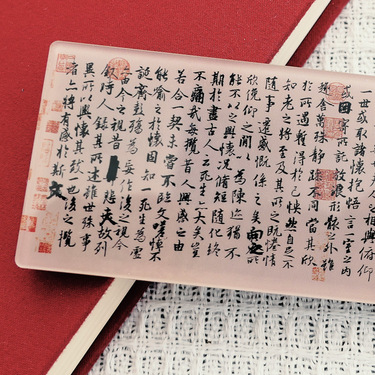 相與俯仰
一世或取諸懷抱悟言一室之內
或因寄所託放浪形骸之外雖
趣舍萬殊靜躁不同當其欣
於所遇蹔得於己怏然自足不
知老之將至及其所之既惓情
隨事遷感慨係之矣向之所
欣俛仰之間以為陳迹猶不
能不以之興懷況脩短隨化終
期於盡古人云死生亦大矣豈
不痛哉每攬昔人興感之由
若合一契未嘗不臨文嗟悼不
能喻之於懷固知一死生為虛
誕齊彭殤為妄作後之視今
亦由今之視昔悲夫故列
敘時人錄其所述雖世殊事
異所以興懷其致一也後之攬
者亦將有感於斯文